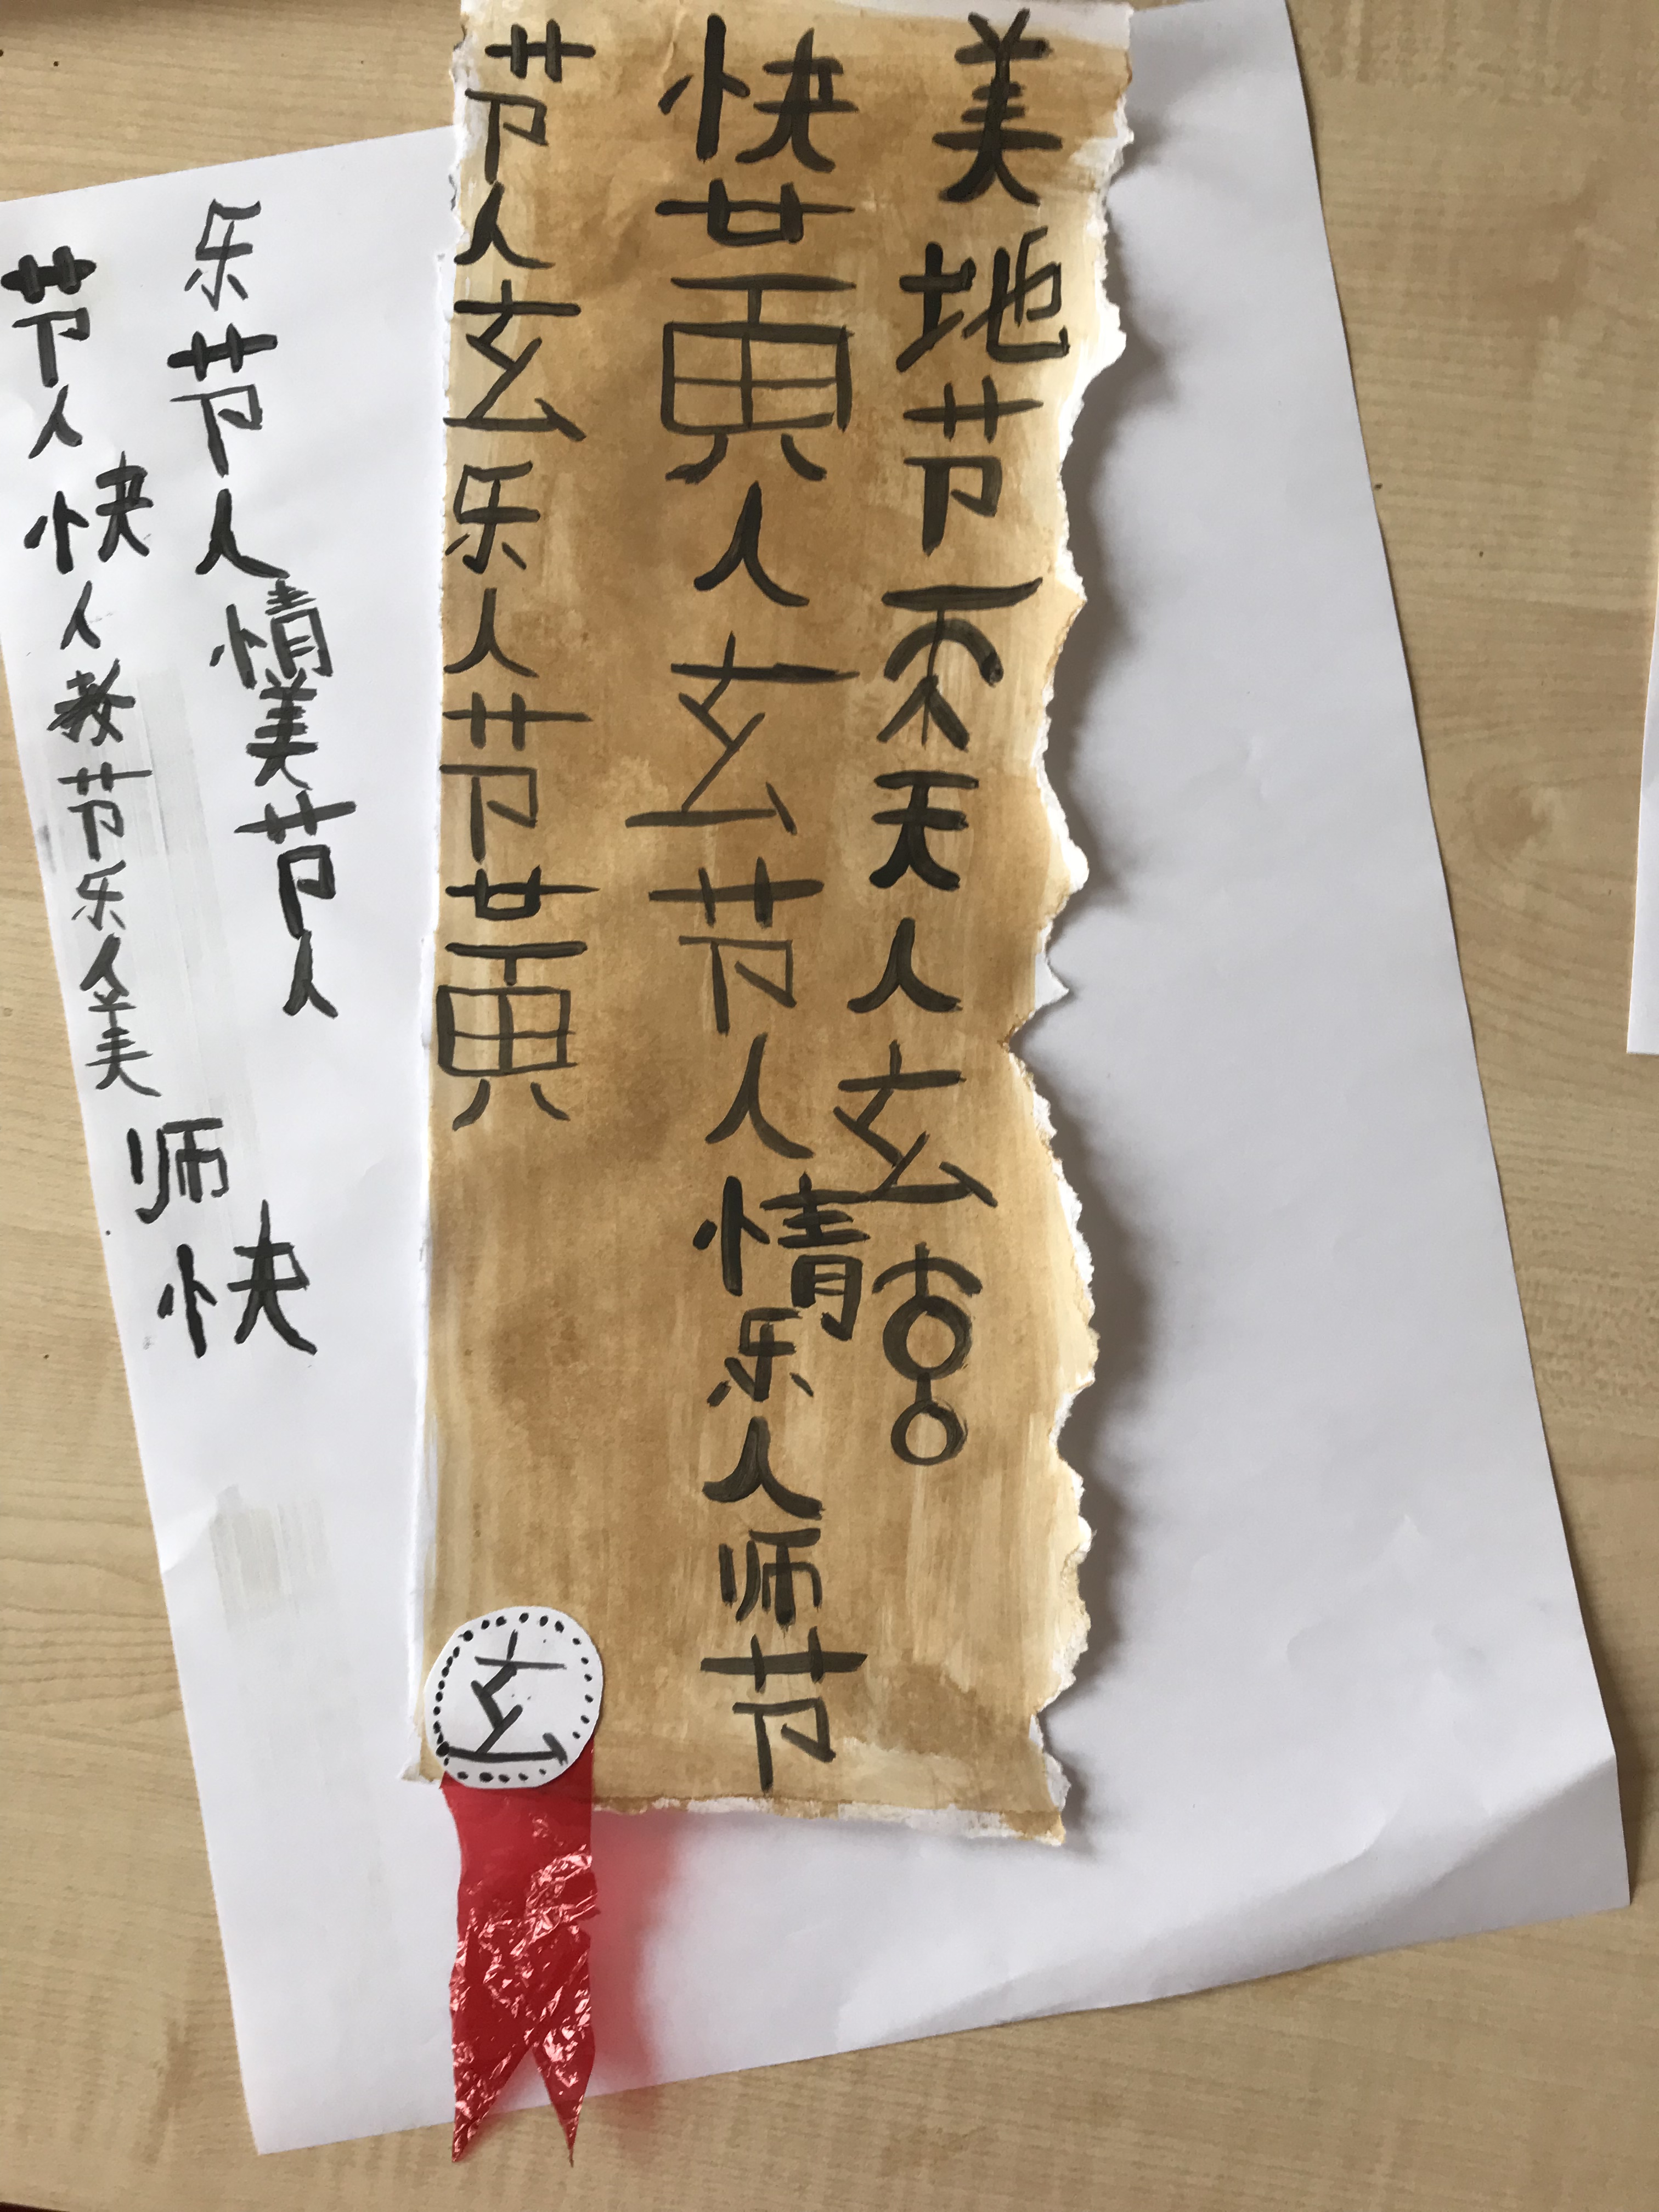 美地节天人玄
快黃人玄节人情乐人师节
节人玄乐人节黃
玄
乐节人情美节人
节人快人教节乐人美师快